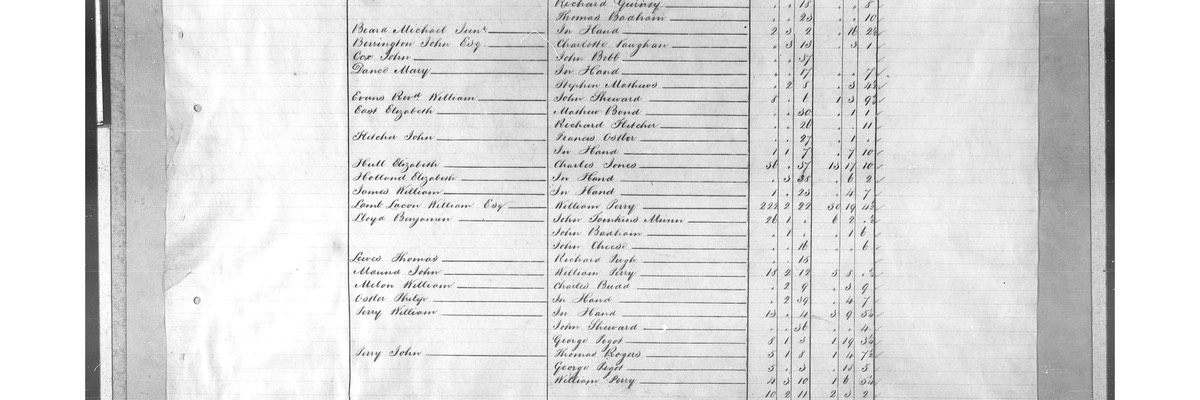 Richard Gurney . . 18 . . 8
Thomas Badham . . 23 . . 10
Beard Michael Junr In Hand 2 3 2 . 16 2½
Berrington John Esq Charlotte Vaughan . 3 13 . 3 1
Cox John John Bebb . . 37
Dance Mary In Hand . . 17 . . 7
Stephen Mathews . 2 8 . 3 4½
Evans Revd William John Sheward 8 . 6 1 3 9¾
East Elizabeth Mathew Bond . . 30 . 1 1
Richard Fletcher . . 26 . . 11
Fletcher John Francis Ostler . . 27 . 1 .
In Hand 1 1 7 . 7 10
Hull Elizabeth Charles Jones 56 . 37 13 17 10
Holland Elizabeth In Hand . 3 38 . 6 2
James William In Hand 1 . 23 . 4 7
Lomb Lacon William Esq William Perry 222 2 22 30 19 4½
Lloyd Benjamin John Tomkins Munn 26 1 . 6 2 .½
John Badham . 1 . . 1 6
John Cheese . . 16 . . 6
Lewis Thomas Richard Pugh . . 15
Maund John William Perry 18 2 12 5 3 .½
Melon William Charles Budd . 2 9 . 3 9
Ostler Philip In Hand . 2 39 . 4 7
Perry William In Hand 13 . 4 3 9 5¼
John Sheward . . 36 . . 4
George Pegot 8 1 3 1 19 3¼
Perry John Thomas Rogers 5 1 8 1 4 7½
George Pegot 3 . 3 . 15 5
William Perry 4 3 10 1 6 5¼
10 2 11 2 3 2